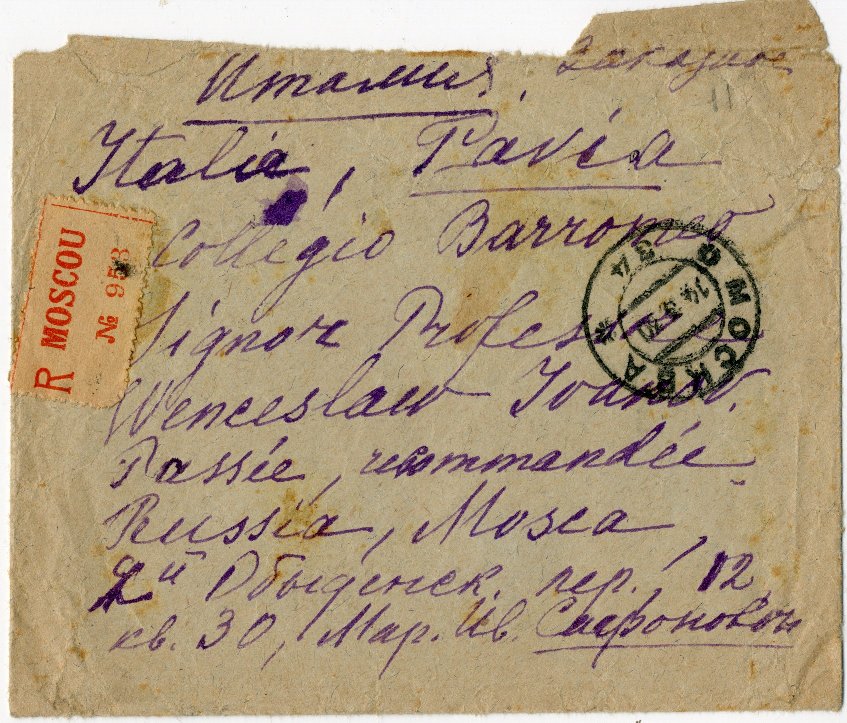 Италия. Заказное
Italia, Pavia
Collegio Barromeo
Signor Profess
Wenceslaw Ivanov.
Passée, recommandée
Russia, Mosca
2й Обыденск. пер., 12,
кв. 30, Мар. Ив. Сафоновой
R MOSCOU
№ 953
МОСКВА
14 9 30